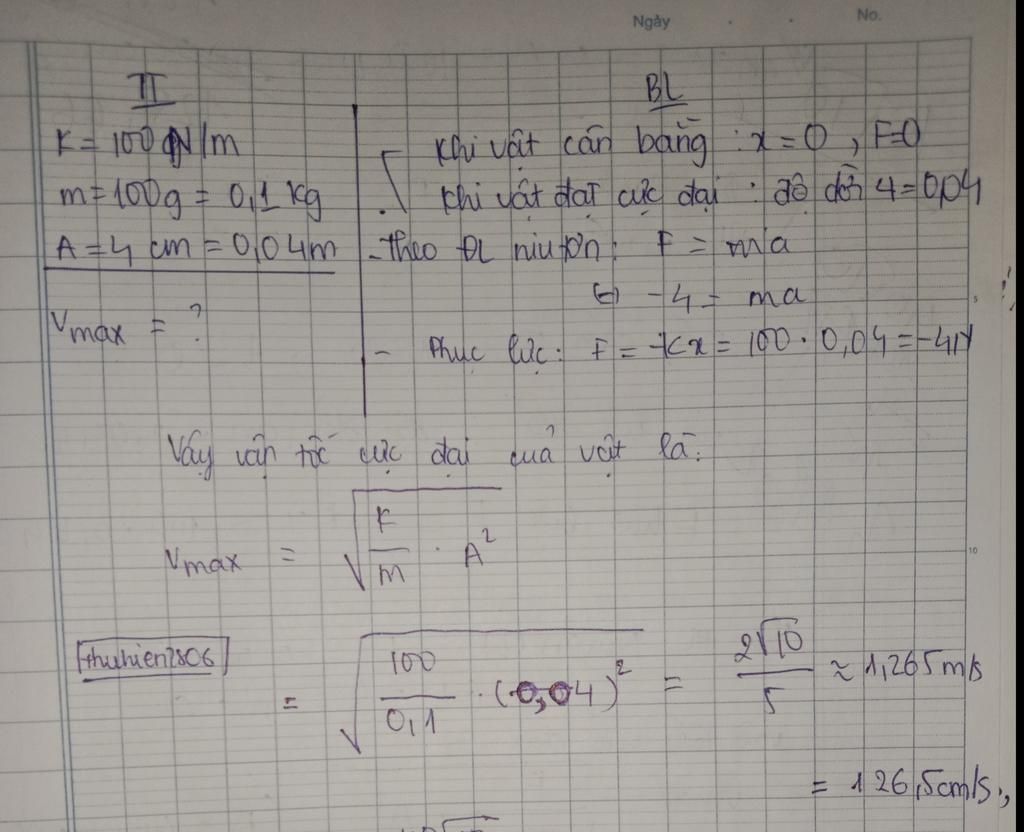 Ngày No.
TT
K = 100 N/m
m = 100g = 0,1 kg
A = 4 cm = 0,04m
Vmax = ?
BL
Khi vật cân bằng : x = 0 , F=0
Khi vật đạt cực đại : độ dời 4 = 0,04
- theo ĐL niutơn : F = m.a
⇔ -4 = ma
- Phục lực : F = -Kx = 100 . 0,04 = -4N
Vậy vận tốc cực đại của vật là :
Vmax = √(K/m . A²)
thuhien2806
= √(100/0,1 . (0,04)²) = 2√10/5 ≈ 1,265 m/s
= 126,5cm/s.,
5
10